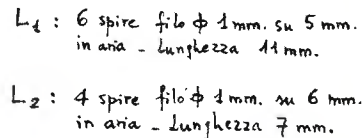 L1 : 6 spire filo ϕ 1 mm. su 5 mm.
in aria - Lunghezza 11 mm.
L2 : 4 spire filo ϕ 1 mm. su 6 mm.
in aria - Lunghezza 7 mm.